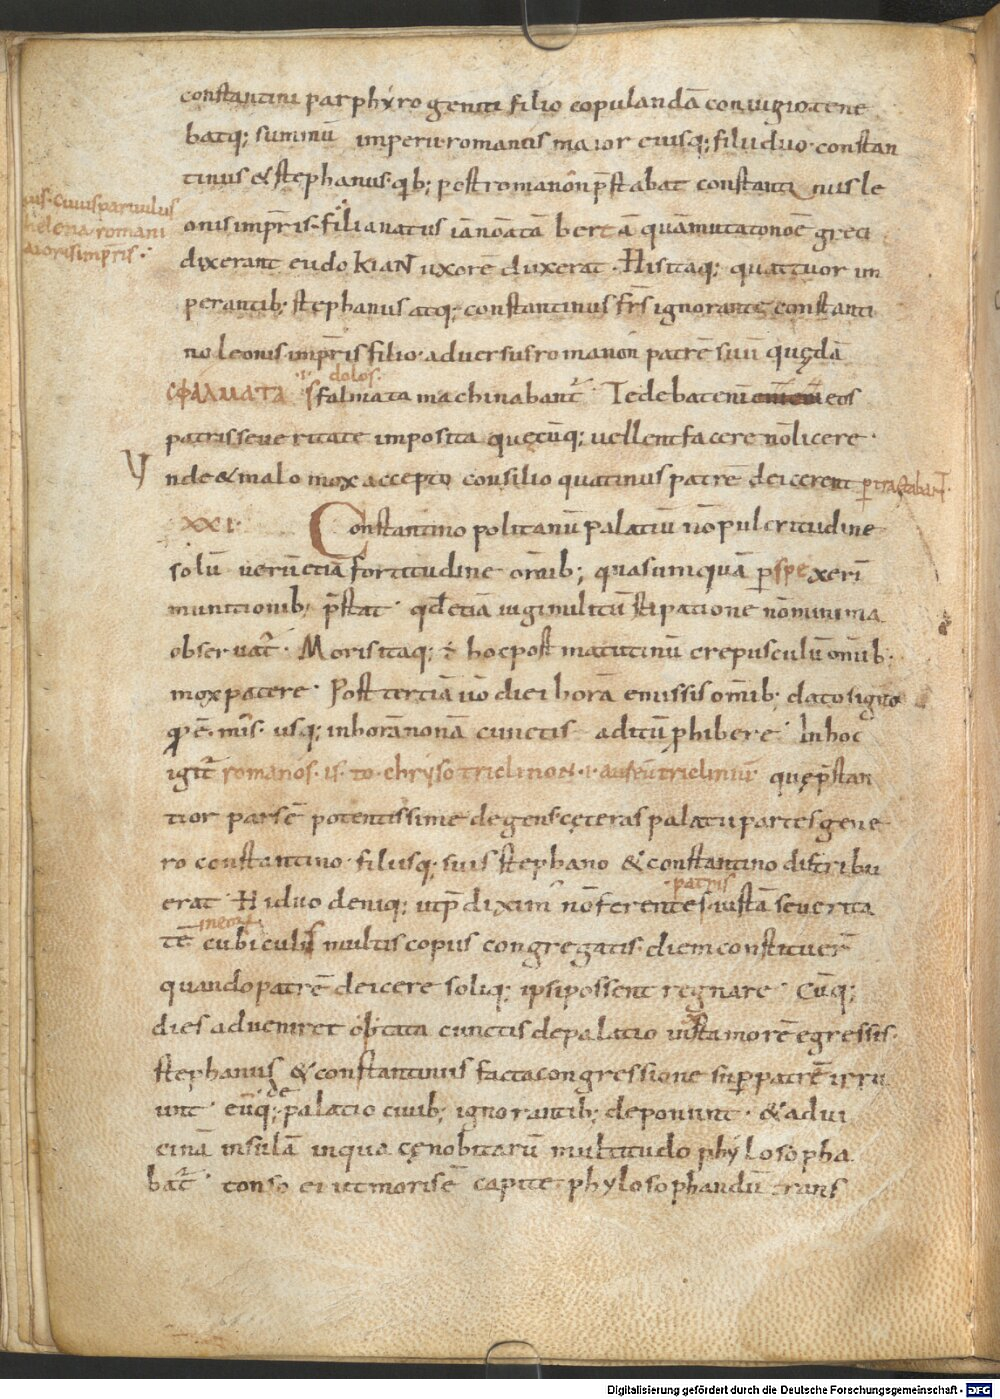 constantini parphyrogeniti filio copulandā coniugio tene
batq; summū imperii romanus maior eiusq; filii duo constan
tinus & stephanus q̄b; post romanōn p̄stabat constanti nus le
ius · cuius paruulus
helena romani
maioris imp̄ris ·
onis imp̄ris · filia natus iā nōatā bertā quā mutato nōe greci
dixerant eudoKIAN uxorē duxerat · His itaq; quattuor im
perantib; stephanus atq; constantinus fr̄s ignorante constanti
no leonis imp̄ris filio · aduersus romanon patrē suū quędā
·i· dolos·
CΦΑΛΜΑΤΑ sfalmata machinabant̄ · Tedebat eni eos
patris seueritate imposita quęcūq; uellent facere nō licere ·
Vnde & malo mox accepto consilio quatinus patrē deicerent p̱tractabant ·
XXI · Constantinopolitanū palatiū nō pulcritudine
solū uerū etiā fortitudine om̄ib; quas umquā p̱spexerī
munitionib; p̄stat · qd̄ etiā iugi militū stipatione nō minima
obseruat̄ · Moris itaq; ÷ hoc post matutinū crepusculū om̄ib·
mox patere · Post tertiā ūo diei horā emissis om̄ib; dato signo
q̄ ē · mis̄ · usq; in horā nonā cunctis aditū p̱hibere · In hoc
igit̄ romanos · is · to · chrysotriclinon · i · aureū triclinium quę p̄stan
tior pars ē potentissime degens cęteras palatii partes gene
ro constantino · filiisq; suis stephano & constantino distribu
erat · Hi duo deniq; ut p̄diximˀ nō ferentes iustā seuerita
patris
tē cubiculis multis copiis congregatis · diem constituer̄
quando patrē deicere soliq; ipsi possent regnare · Cūq;
dies adueniret optata cunctis de palatio iuxta morē egressis ·
stephanus & constantinus facta congressione sup̱ patrē irru
unt · eūq; de palatio ciuib; ignorantib; deponunt · & ad ui
cinā insulā in qua cęnobitarū multitudo phylosopha
bat̄ · tonso ei ut moris ē capite phylosophandū trans